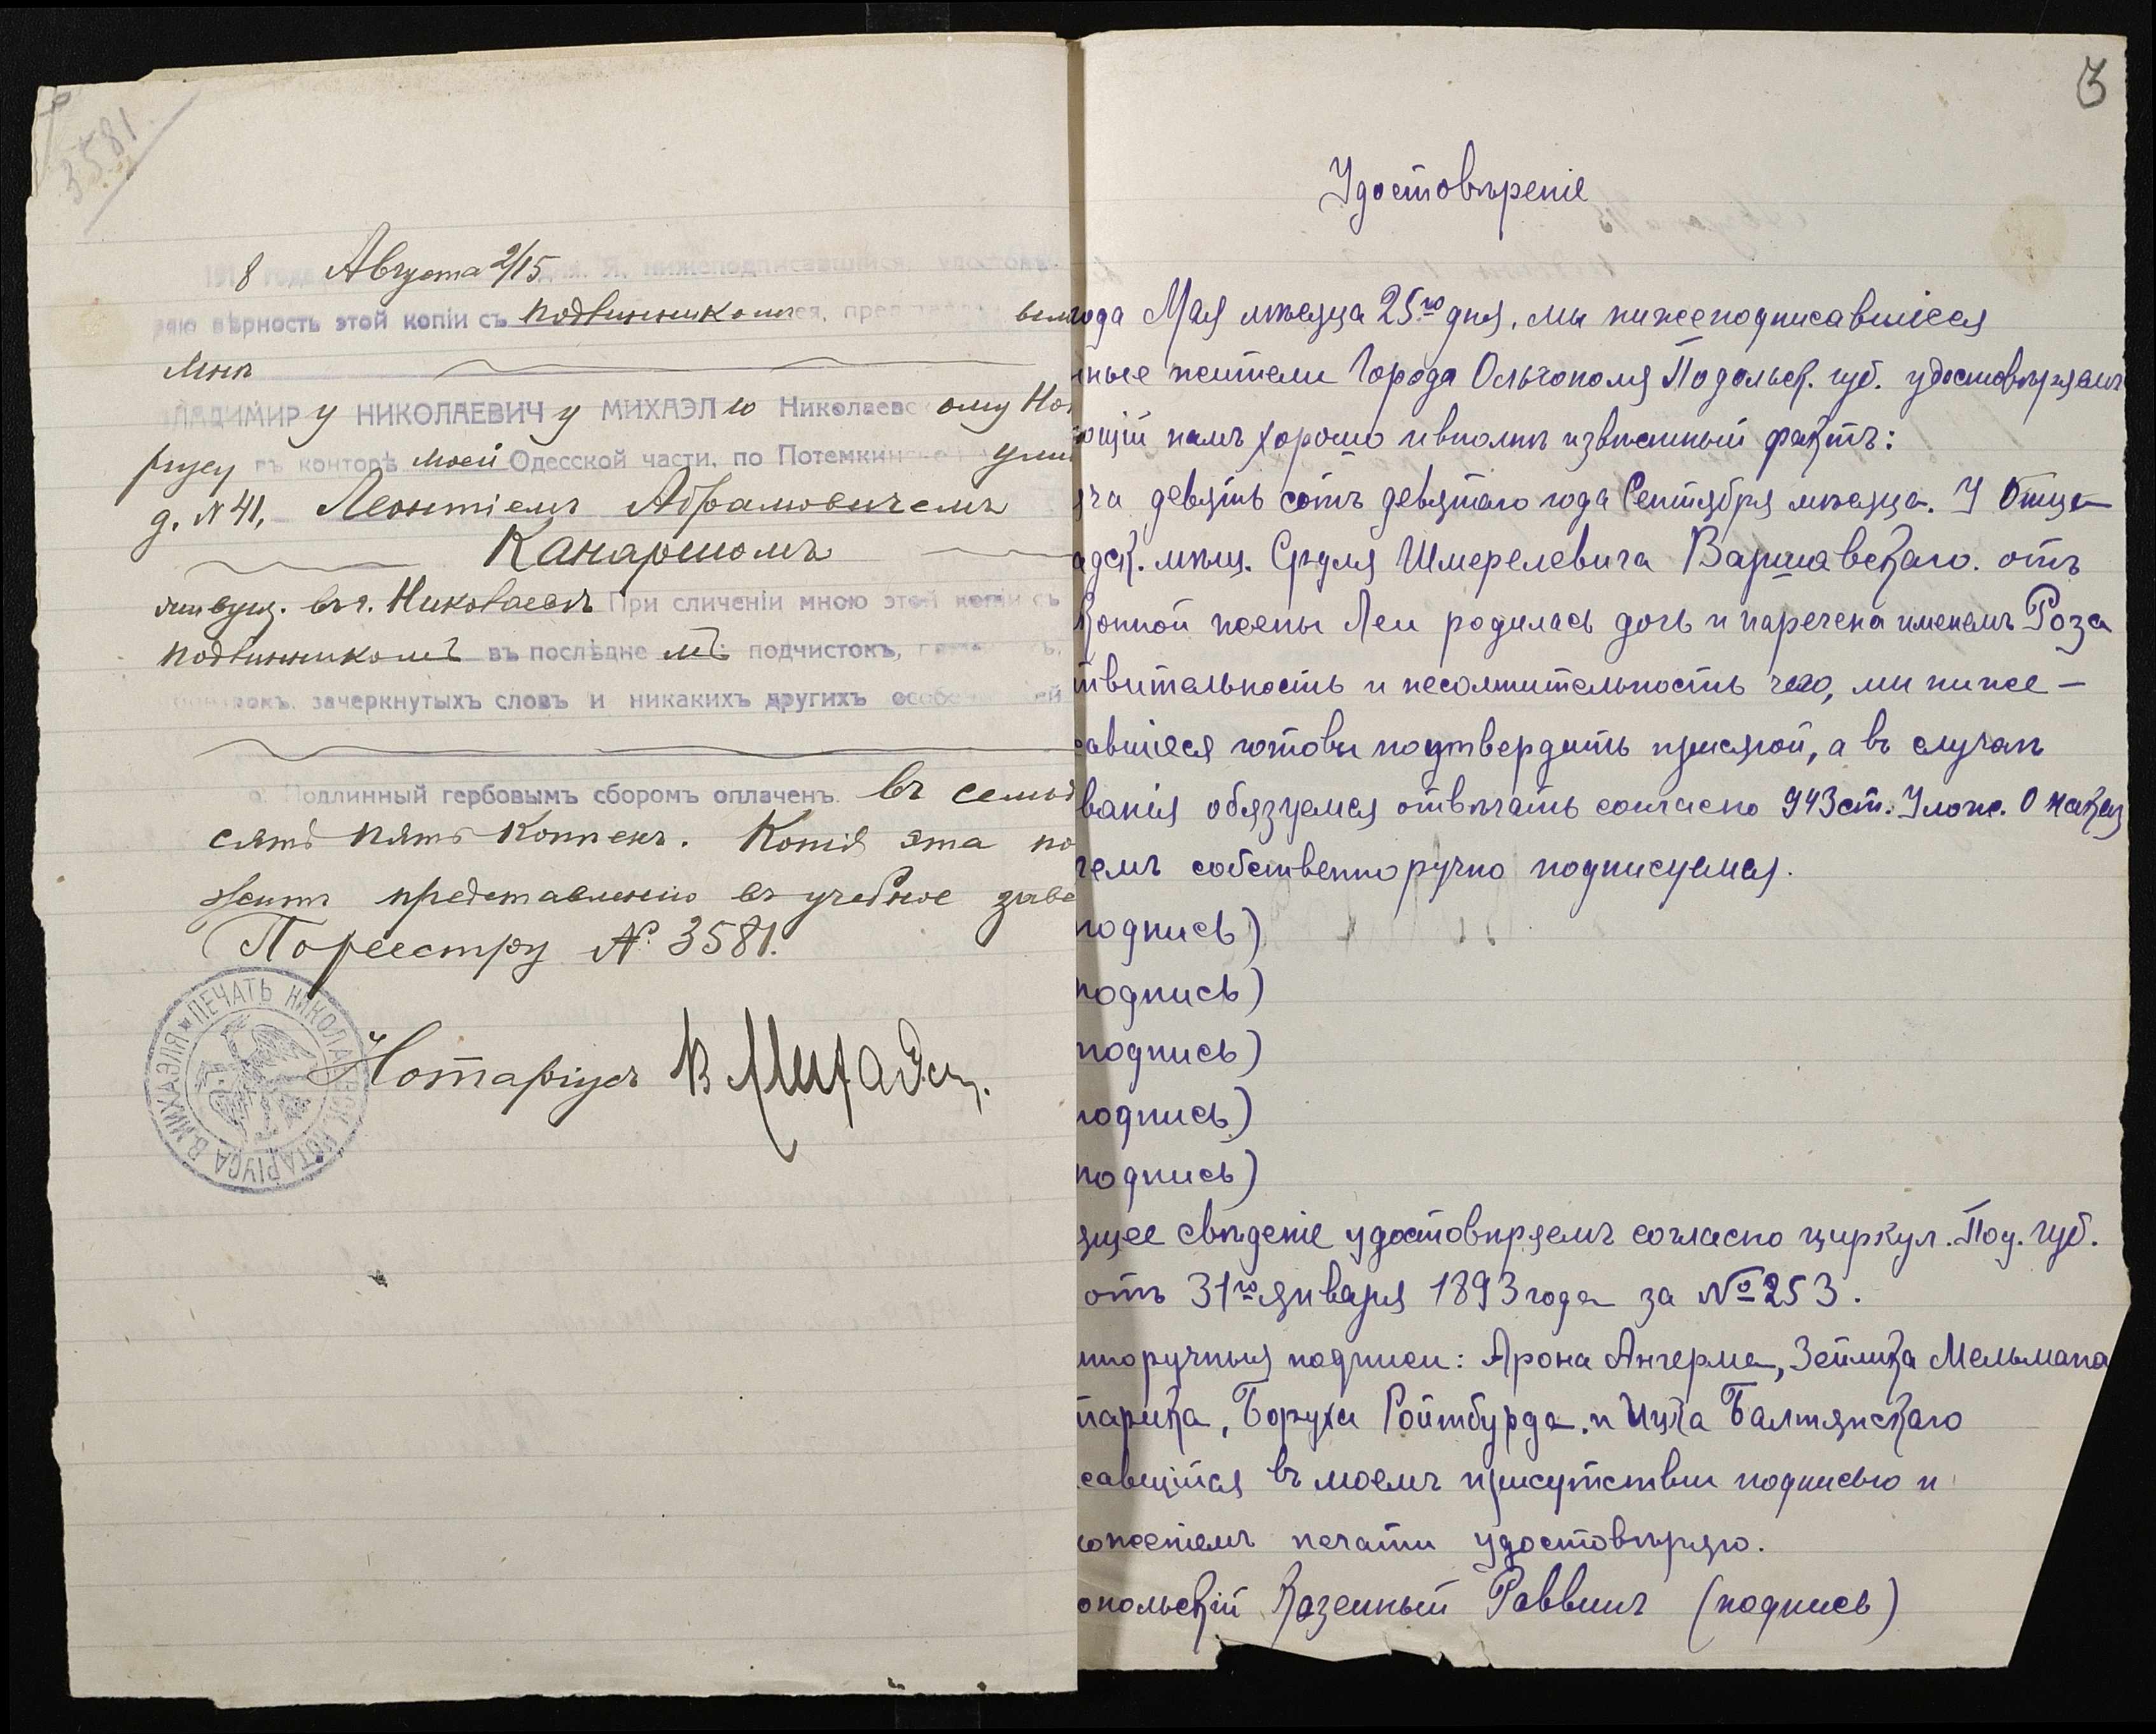 3581
1918 года Августа 2/15 дня. Я, нижеподписавшийся, удостовѣ-
ряю вѣрность этой копіи съ подлинникомъ ея,
мнѣ
ВЛАДИМИРу НИКОЛАЕВИЧу МИХАЭЛю Николаевскому Но
ріусу въ конторѣ моей Одесской части, по Потемкинской ули
д. №41, Леонтіемъ Абрамовичемъ
Канаршомъ
живущ. въ г. Николаевѣ При сличеніи мною этой копіи съ
подлинникомъ въ послѣднемъ подчистокъ,
зачеркнутыхъ словъ и никакихъ другихъ особенностей
Подлинный гербовымъ сборомъ оплаченъ. въ семьд
сятъ пять копѣекъ. Копія эта по
житъ представленію въ учебное заве
По реестру № 3581.
ПЕЧАТЬ НИКОЛАЕВСК. НОТАРІУСА В. МИХАЭЛЯ
Нотаріусъ В Михаэль.
3
Удостовѣреніе
года Мая мѣсяца 25го дня, мы нижеподписавшіеся
ные жители Города Ольгополя Подольск. губ. удостовѣряемъ
ющій намъ хорошо и вполнѣ извѣстный фактъ:
яча девять сотъ девятаго года Сентября мѣсяца. У Отца
адск. мѣщ. Сруля Шмерелевича Варшавскаго. отъ
конной жены Леи родилась дочь и наречена именемъ Роза
твительность и несомнительность чего, ми ниже-
савшіеся готовы подтвердить присягой, а въ случаѣ
ванія обязуемся отвѣчать согласно 943 ст. Улож. О наказ
чемъ собственноручно подписуемся.
подпись)
подпись)
подпись)
подпись)
подпись)
ящее свѣденіе удостовѣряемъ согласно циркул. Под. губ.
отъ 31го января 1893 года за № 253.
нноручныя подписи: Арона Ангерма, Зейлика Мельмана
Боруха Ройтбурда, и Ицка Балтянскаго
савшійся въ моемъ присутствіи подписью и
ложеніемъ печати удостовѣряю.
опольскій Казенный Раввинъ (подпись)